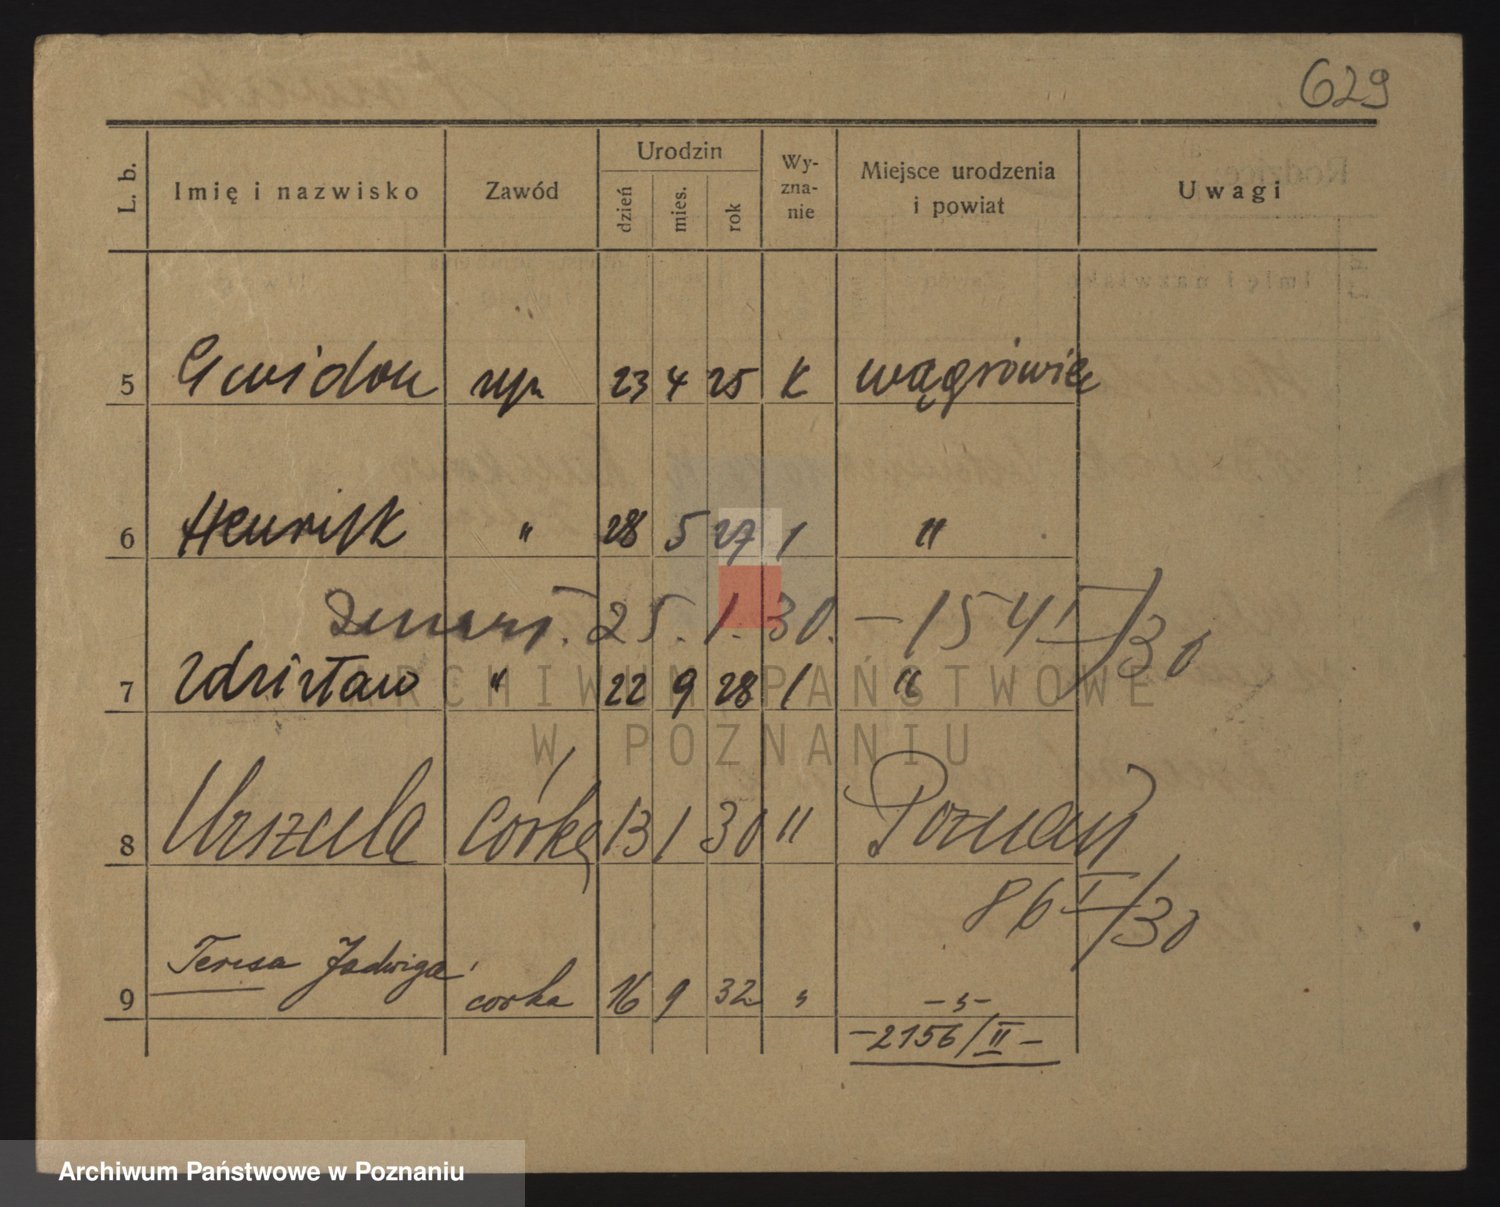 629
L. b. Imię i nazwisko Zawód Urodzin dzień mies. rok Wyznanie Miejsce urodzenia i powiat Uwagi
5 Gwidon syn 23 4 25 K Wągrówiec
6 Henrik " 28 5 27 " "
25. 1. 30. – 154 I/30
7 Zdzisław " 22 9 28 " "
8 Urszula córka 13 1 30 " Poznań
86 I/30
9 Teresa Jadwiga corka 16 9 32 " -"-
-2156/II-
ARCHIWUM PAŃSTWOWE
W POZNANIU
Archiwum Państwowe w Poznaniu